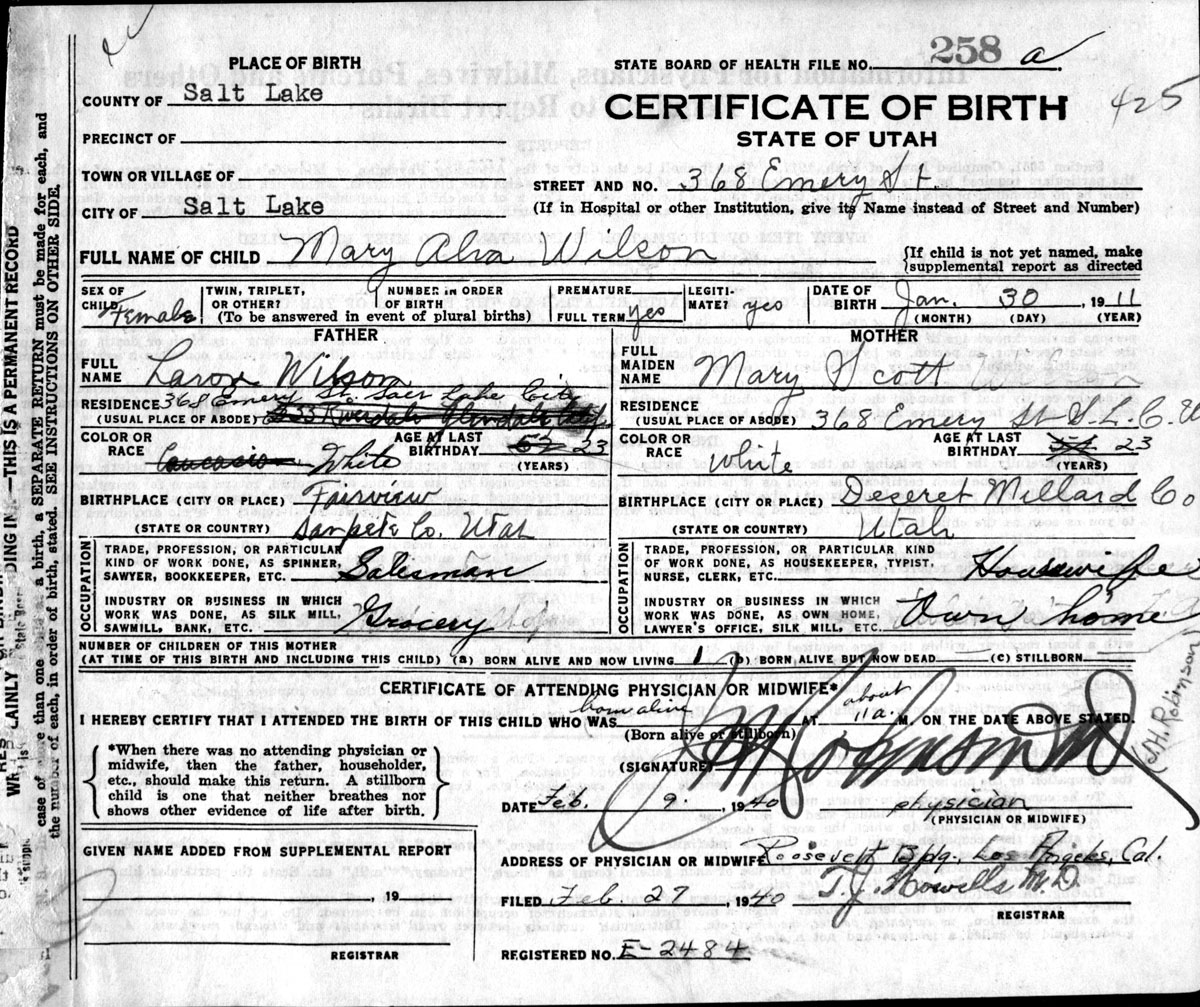 PLACE OF BIRTH
STATE BOARD OF HEALTH FILE NO. 258 a
COUNTY OF Salt Lake
CERTIFICATE OF BIRTH
425
PRECINCT OF
STATE OF UTAH
TOWN OR VILLAGE OF
STREET AND NO. 368 Emery St.
CITY OF Salt Lake
(If in Hospital or other Institution, give its Name instead of Street and Number)
FULL NAME OF CHILD Mary Alva Wilson
{If child is not yet named, make
supplemental report as directed
SEX OF CHILD Female
TWIN, TRIPLET, OR OTHER?
NUMBER IN ORDER OF BIRTH
(To be answered in event of plural births)
PREMATURE
FULL TERM yes
LEGITI-MATE? yes
DATE OF BIRTH Jan. 30, 1911
(MONTH) (DAY) (YEAR)
FATHER
FULL NAME Laron Wilson
RESIDENCE 368 Emery St. Salt Lake City
(USUAL PLACE OF ABODE) 633 Riverdale Glendale Calif
COLOR OR RACE Caucasian White
AGE AT LAST BIRTHDAY 52 23
(YEARS)
BIRTHPLACE (CITY OR PLACE) Fairview
(STATE OR COUNTRY) Sanpete Co. Utah
OCCUPATION
TRADE, PROFESSION, OR PARTICULAR
KIND OF WORK DONE, AS SPINNER,
SAWYER, BOOKKEEPER, ETC. Salesman
INDUSTRY OR BUSINESS IN WHICH
WORK WAS DONE, AS SILK MILL,
SAWMILL, BANK, ETC. Grocery
MOTHER
FULL MAIDEN NAME Mary Scott
RESIDENCE
(USUAL PLACE OF ABODE) 368 Emery St S.L.C. U
COLOR OR RACE White
AGE AT LAST BIRTHDAY 51 23
(YEARS)
BIRTHPLACE (CITY OR PLACE) Deseret Millard Co
(STATE OR COUNTRY) Utah
OCCUPATION
TRADE, PROFESSION, OR PARTICULAR KIND
OF WORK DONE, AS HOUSEKEEPER, TYPIST,
NURSE, CLERK, ETC. Housewife
INDUSTRY OR BUSINESS IN WHICH
WORK WAS DONE, AS OWN HOME,
LAWYER'S OFFICE, SILK MILL, ETC. Own home
NUMBER OF CHILDREN OF THIS MOTHER
(AT TIME OF THIS BIRTH AND INCLUDING THIS CHILD) (a) BORN ALIVE AND NOW LIVING 1 (b) BORN ALIVE BUT NOW DEAD (c) STILLBORN
CERTIFICATE OF ATTENDING PHYSICIAN OR MIDWIFE*
I HEREBY CERTIFY THAT I ATTENDED THE BIRTH OF THIS CHILD WHO WAS born alive AT about 11 a. M. ON THE DATE ABOVE STATED.
(Born alive or stillborn)
*When there was no attending physician or
midwife, then the father, householder,
etc., should make this return. A stillborn
child is one that neither breathes nor
shows other evidence of life after birth.
(SIGNATURE) J H Robinson M.D.
(J.H. Robinson)
DATE Feb. 9, 1940 physician
(PHYSICIAN OR MIDWIFE)
GIVEN NAME ADDED FROM SUPPLEMENTAL REPORT
ADDRESS OF PHYSICIAN OR MIDWIFE Roosevelt Bldg. Los Angeles, Cal.
, 19
FILED Feb 27 1940 T. J. Howells M.D.
REGISTRAR
REGISTRAR
REGISTERED NO. E-2484
DING IN —THIS IS A PERMANENT RECORD
case of more than one a birth, a SEPARATE RETURN must be made for each, and
the number of each, in order of birth, stated. SEE INSTRUCTIONS ON OTHER SIDE.